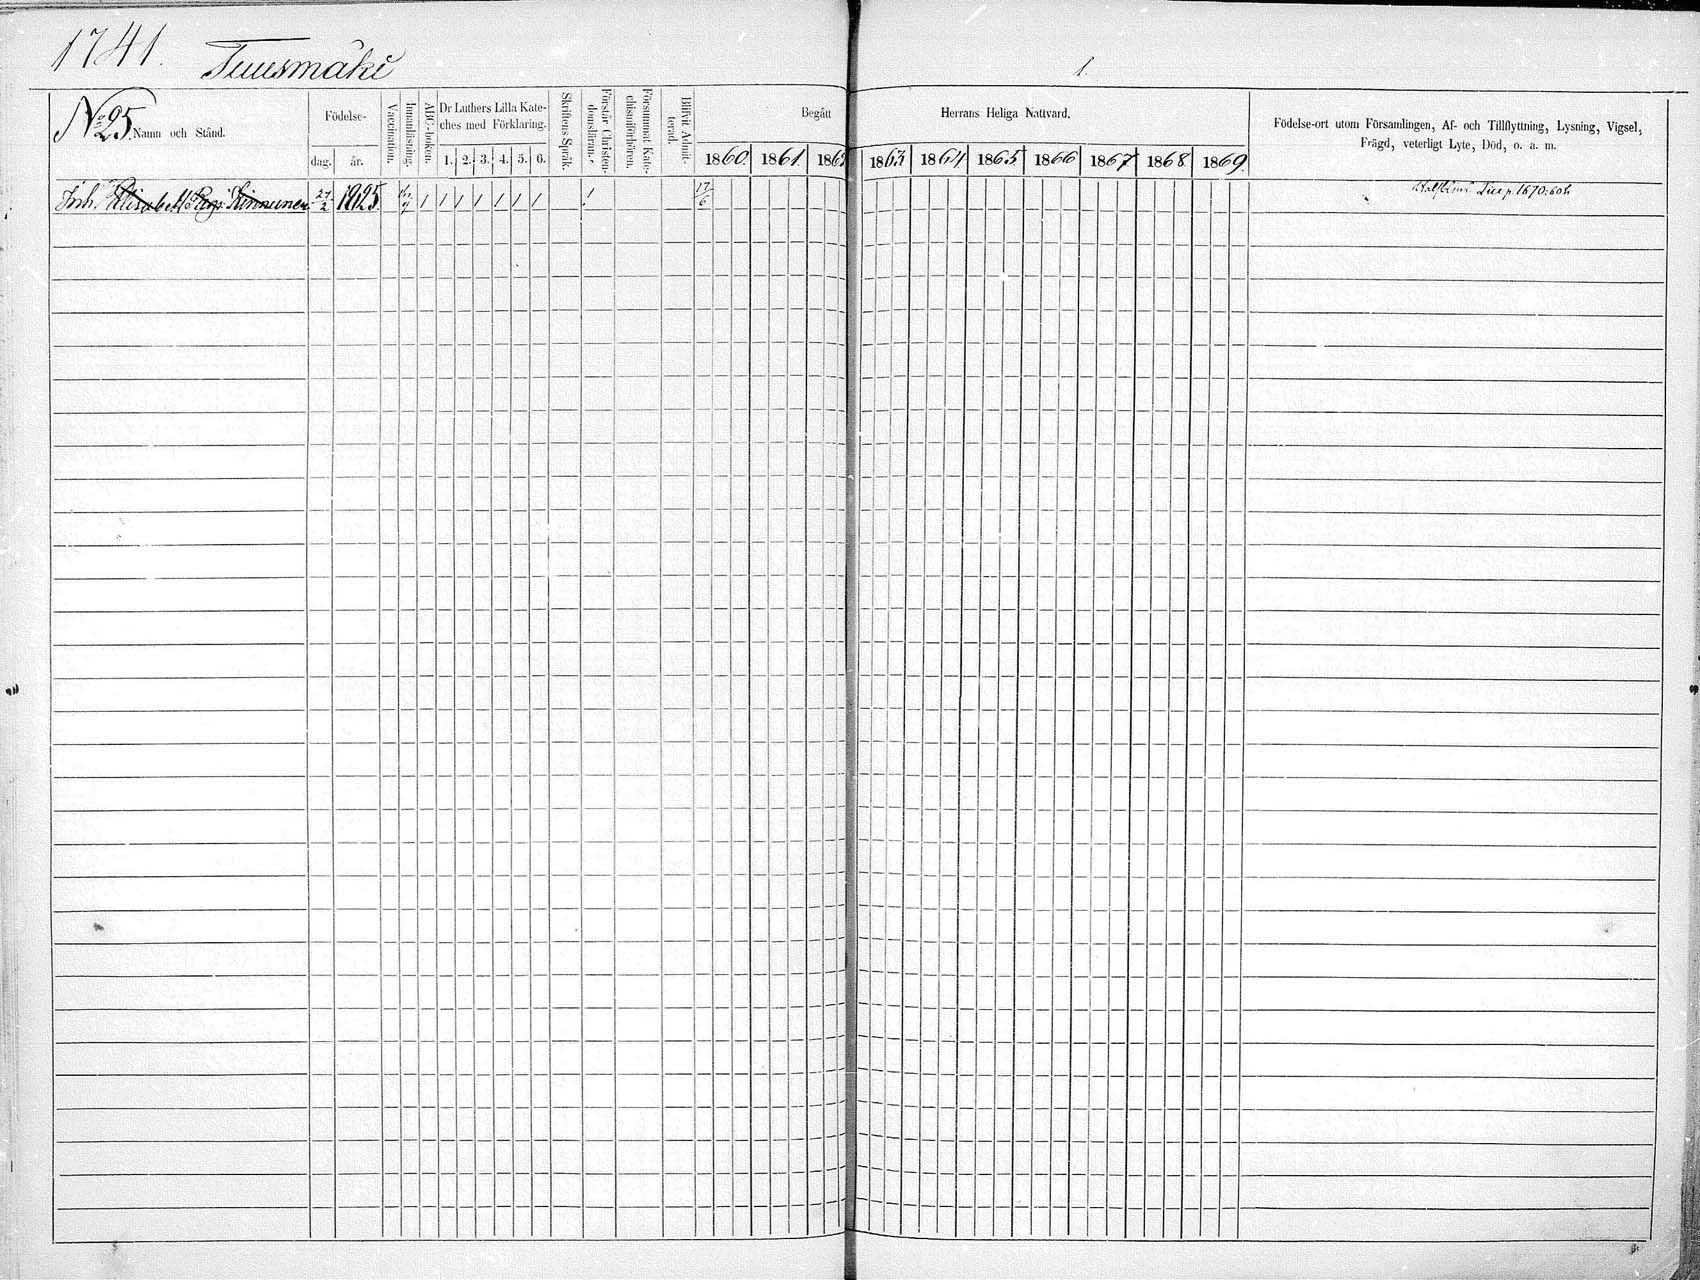 1741. Tuusmäki
1.
No 25. Namn och Stånd.
Födelse-
dag. år.
Vaccination.
Innanläsning.
ABC-boken.
Dr Luthers Lilla Kate-
ches med Förklaring.
1. 2. 3. 4. 5. 6.
Skriftens Språk.
Förstår Christen-
domsläran.
Försummat Kate-
chismiförhören.
Blifvit Admit-
terad.
Begått Herrans Heliga Nattvard.
1860. 1861 1862 1863 1864 1865 1866 1867 1868 1869.
Födelse-ort utom Församlingen, Af- och Tillflyttning, Lysning, Vigsel,
Frägd, veterligt Lyte, Död, o. a. m.
Inh. Elisabeth Kinnunen 27/2 1825 1 1 1 1 1 1 1 1 17/6 p. 1670.